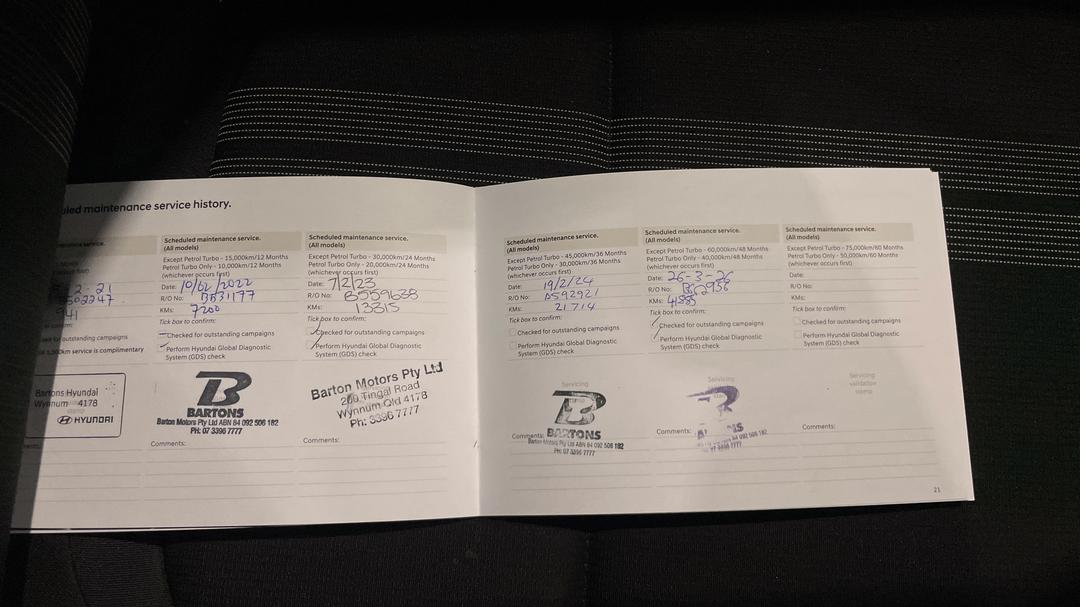 uled maintenance service history.
Scheduled maintenance service.
(All models)
Except Petrol Turbo - 15,000km/12 Months
Petrol Turbo Only - 10,000km/12 Months
(whichever occurs first)
Date: 10/02/2022
R/O No: B531177
KMs: 7200
Tick box to confirm:
Checked for outstanding campaigns
Perform Hyundai Global Diagnostic
System (GDS) check
BARTONS
Barton Motors Pty Ltd ABN 84 092 506 182
PH: 07 3396 7777
Comments:
Scheduled maintenance service.
(All models)
Except Petrol Turbo - 30,000km/24 Months
Petrol Turbo Only - 20,000km/24 Months
(whichever occurs first)
Date: 7/2/23
R/O No: B559638
KMs: 13315
Tick box to confirm:
Checked for outstanding campaigns
Perform Hyundai Global Diagnostic
System (GDS) check
Barton Motors Pty Ltd
Tingal Road
Wynnum Qld 4178
Ph: 3396 7777
Comments:
2-21
941
confirm:
km service is complimentary
Bartons Hyundai
Wynnum 4178
HYUNDAI
Scheduled maintenance service.
(All models)
Except Petrol Turbo - 45,000km/36 Months
Petrol Turbo Only - 30,000km/36 Months
(whichever occurs first)
Date: 19/2/24
R/O No: B592921
KMs: 21714
Tick box to confirm:
Checked for outstanding campaigns
Perform Hyundai Global Diagnostic
System (GDS) check
Servicing
BARTONS
Barton Motors Pty Ltd ABN 84 092 506 182
PH: 07 3396 7777
Comments:
Scheduled maintenance service.
(All models)
Except Petrol Turbo - 60,000km/48 Months
Petrol Turbo Only - 40,000km/48 Months
(whichever occurs first)
Date: 26-3-26
R/O No:
KMs: 41885
Tick box to confirm:
Checked for outstanding campaigns
Perform Hyundai Global Diagnostic
System (GDS) check
Servicing
84 092 506 182
07 3396 7777
Comments:
Scheduled maintenance service.
(All models)
Except Petrol Turbo - 75,000km/60 Months
Petrol Turbo Only - 50,000km/60 Months
(whichever occurs first)
Date:
R/O No:
KMs:
Tick box to confirm:
Checked for outstanding campaigns
Perform Hyundai Global Diagnostic
System (GDS) check
Servicing
validation
stamp
Comments:
21